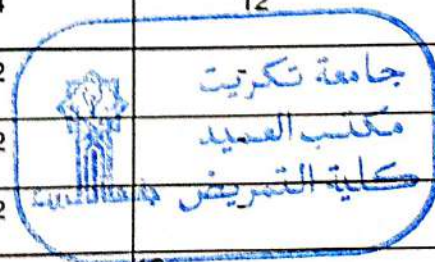 12
جامعة تكريت
مكتب العميد
كلية التمريض